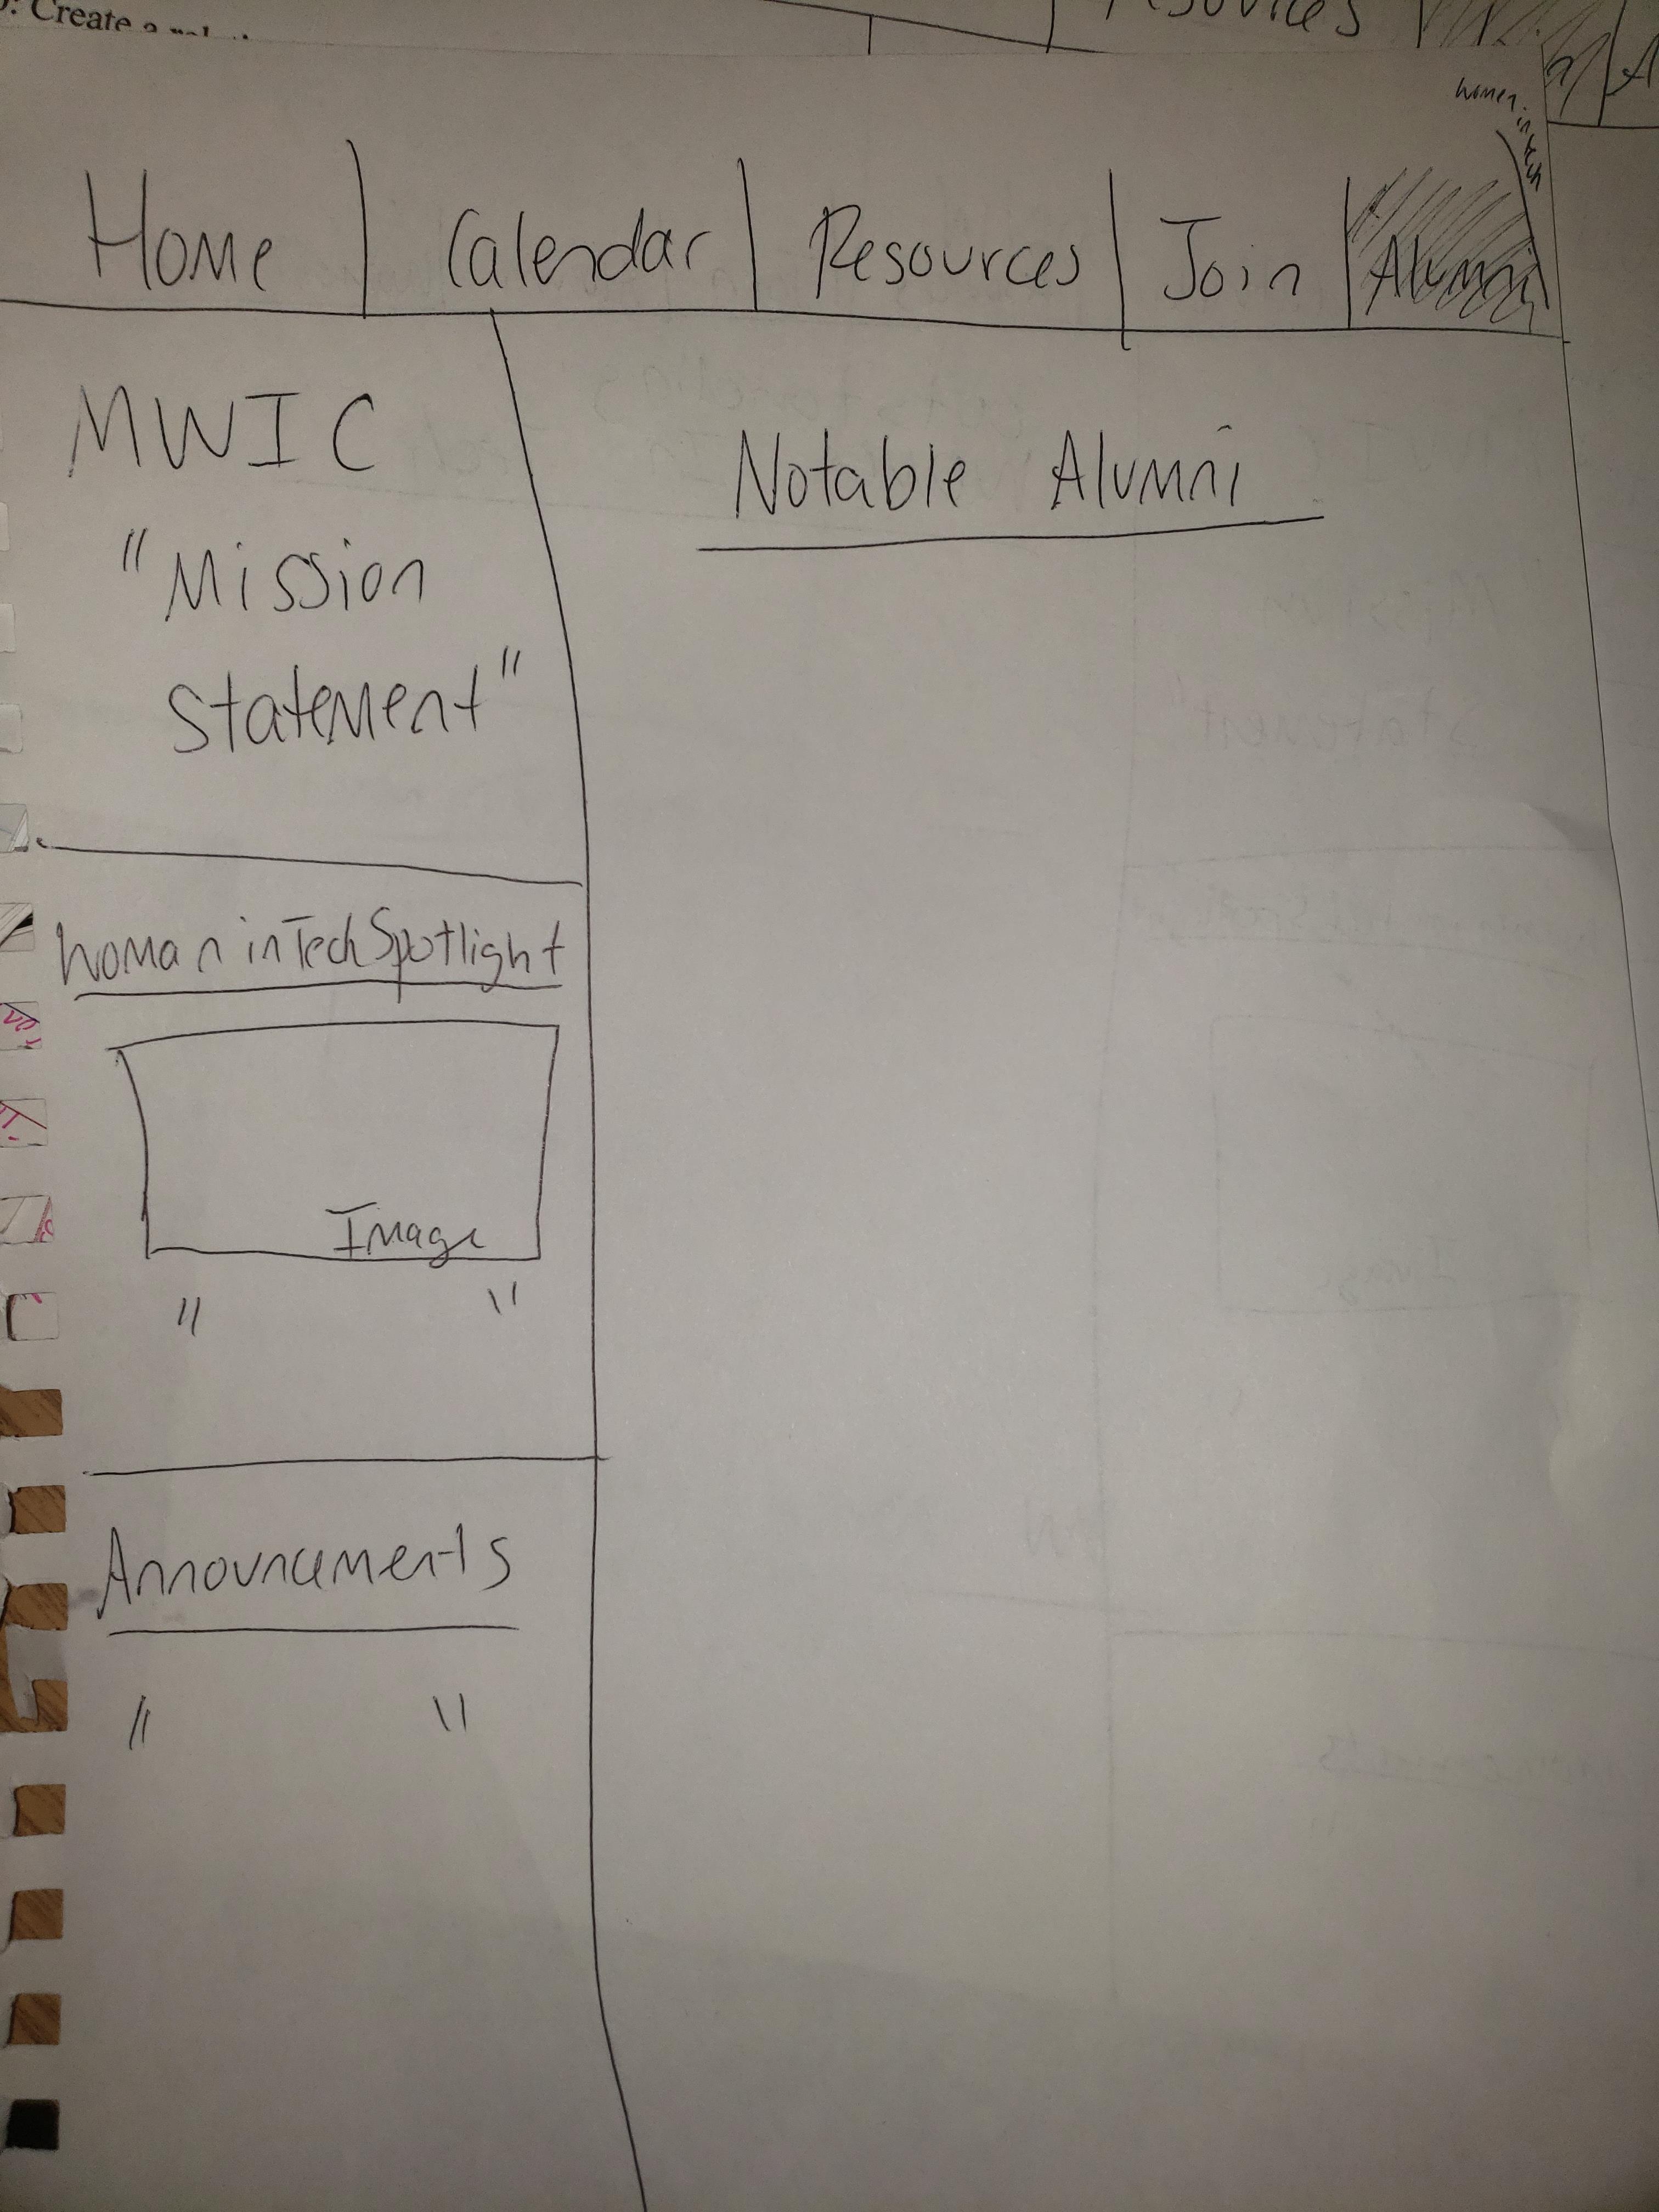 Home Calendar Resources Join Alumni
MWIC
"Mission
Statement"
Woman in Tech Spotlight
Image
" "
Announcements
" "
Notable Alumni
: Create a
Resources